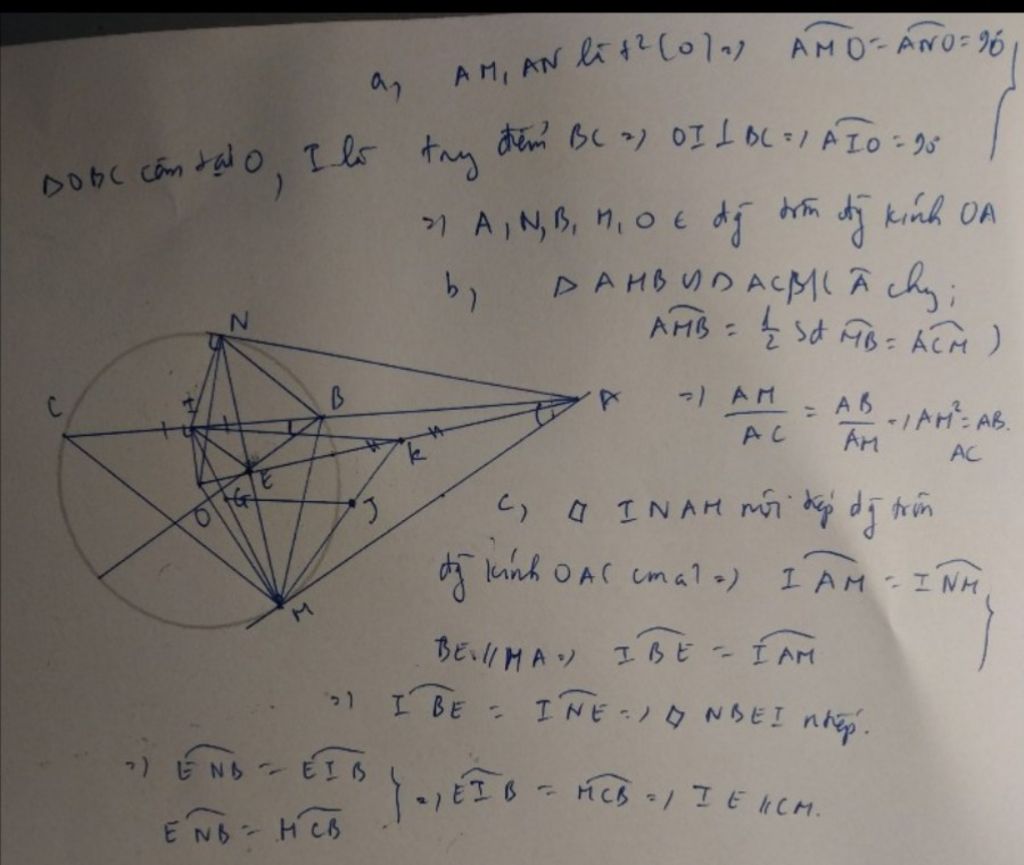 a, AM, AN là t² (O) => AMO = ANO = 90
ΔOBC cân tại O, I là trung điểm BC => OI ⊥ BC => AIO = 90
=> A, N, B, M, O ∈ đg tròn đg kính OA
b, ΔAMB ∽ ΔACM ( A chg;
AMB = 1/2 sđ MB = ACM )
=> AM/AC = AB/AM => AM² = AB.
AC
c, ◊ INAM nội tiếp đg tròn
đg kính OA ( cma) => IAM = INM
BE // MA => IBE = IAM
=> IBE = INE => ◊ NBEI ntiếp.
=> ENB = EIB
ENB = MCB
=> EIB = MCB => IE // CM.
N
C
I
B
A
K
E
G
O
J
M